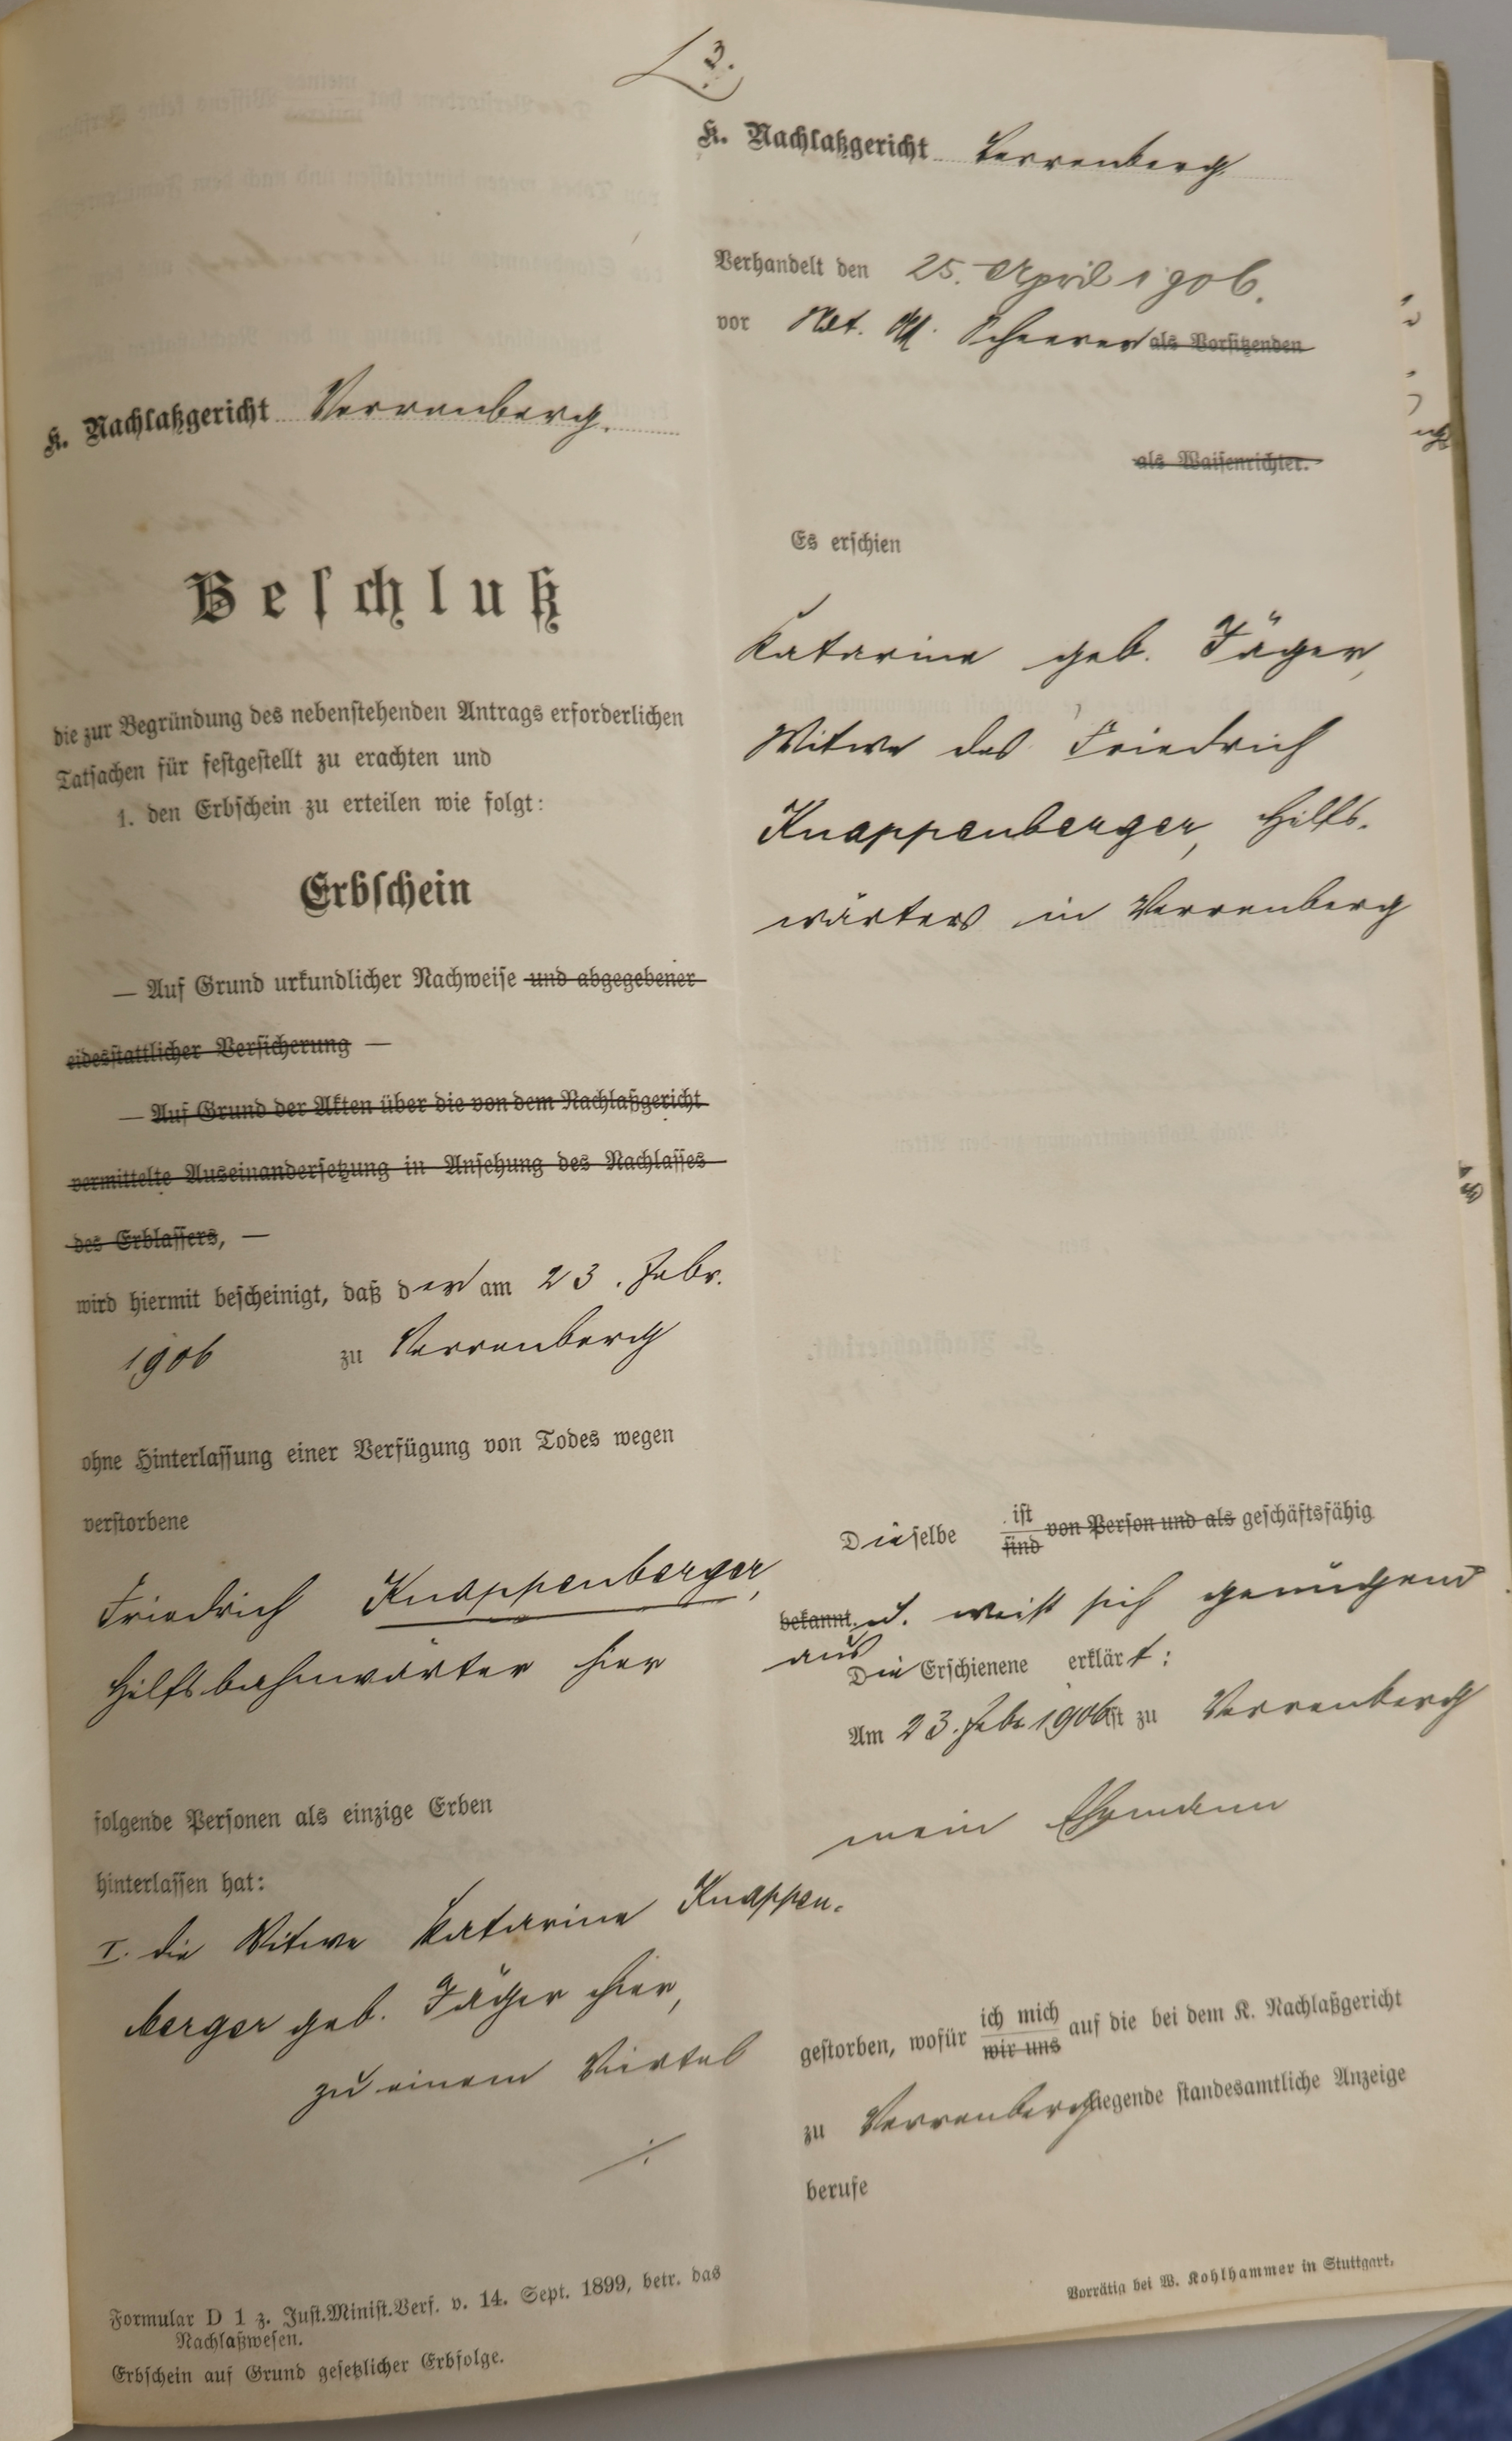 3.
K. Nachlaßgericht Verrenberg.
Beschluß
die zur Begründung des nebenstehenden Antrags erforderlichen
Tatsachen für festgestellt zu erachten und
1. den Erbschein zu erteilen wie folgt:
Erbschein
— Auf Grund urkundlicher Nachweise und abgegebener
eidesstattlicher Versicherung —
— Auf Grund der Akten über die von dem Nachlaßgericht
vermittelte Auseinandersetzung in Ansehung des Nachlasses
des Erblassers, —
wird hiermit bescheinigt, daß der am 23. Febr.
1906 zu Verrenberg
ohne Hinterlassung einer Verfügung von Todes wegen
verstorbene
Friedrich Knappenberger,
Hilfsbahnwärter hier
folgende Personen als einzige Erben
hinterlassen hat:
I. die Witwe Katarine Knappen-
berger geb. Jäger hier,
zu einem Viertel
./.
Formular D 1 z. Just.Minist.Verf. v. 14. Sept. 1899, betr. das
Nachlaßwesen.
Erbschein auf Grund gesetzlicher Erbfolge.
K. Nachlaßgericht Verrenberg
Verhandelt den 25. April 1906.
vor Not. Scheerer als Vorsitzenden
als Waisenrichter.
Es erschien
Katarine geb. Jäger,
Witwe des Friedrich
Knappenberger, Hilfs-
wärters in Verrenberg
Dieselbe ist
sind von Person und als geschäftsfähig
bekannt. u. weist sich genügend
aus
Die Erschienene erklärt:
Am 23. Febr 1906 ist zu Verrenberg
mein Ehemann
gestorben, wofür ich mich
wir uns auf die bei dem K. Nachlaßgericht
zu Verrenberg liegende standesamtliche Anzeige
berufe
Vorrätig bei W. Kohlhammer in Stuttgart.